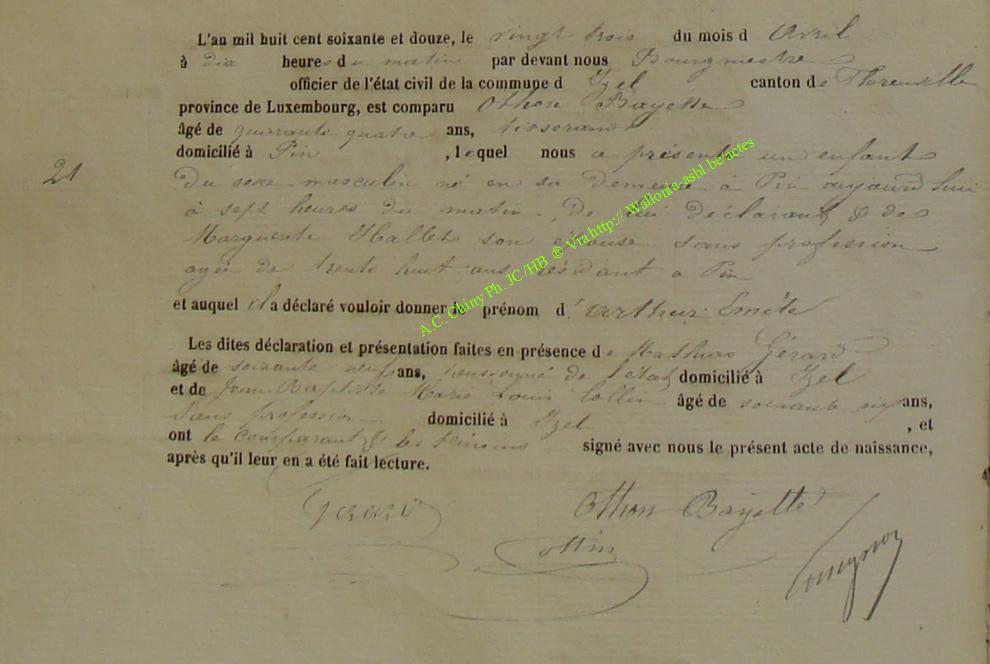 L'an mil huit cent soixante et douze, le vingt trois du mois d'Avril
à dix heures du matin par devant nous Bourgmestre
officier de l'état civil de la commune d'Izel canton de Florenville
province de Luxembourg, est comparu Othon Bayette
âgé de quarante quatre ans, tisserand
domicilié à Pin , lequel nous a présenté un enfant
21
du sexe masculin né en sa demeure à Pin aujourd'hui
à sept heures du matin, de lui déclarant & de
Marguerite Hallet son épouse sans profession
agée de trente huit ans résidant a Pin
et auquel il a déclaré vouloir donner le prénom d'Arthur Emile
Les dites déclaration et présentation faites en présence de Mathias Gérard
âgé de soixante neuf ans, pensionné de l'état domicilié à Izel
et de Jean Baptiste Marie Louis Collin âgé de soixante six ans,
sans profession domicilié à Izel , et
ont le comparant & les témoins signé avec nous le présent acte de naissance,
après qu'il leur en a été fait lecture.
Gerard Othon Bayette
Collin
A.C. Chiny Ph. JC/HB ® Via http:// Wallonia-asbl.be/actes